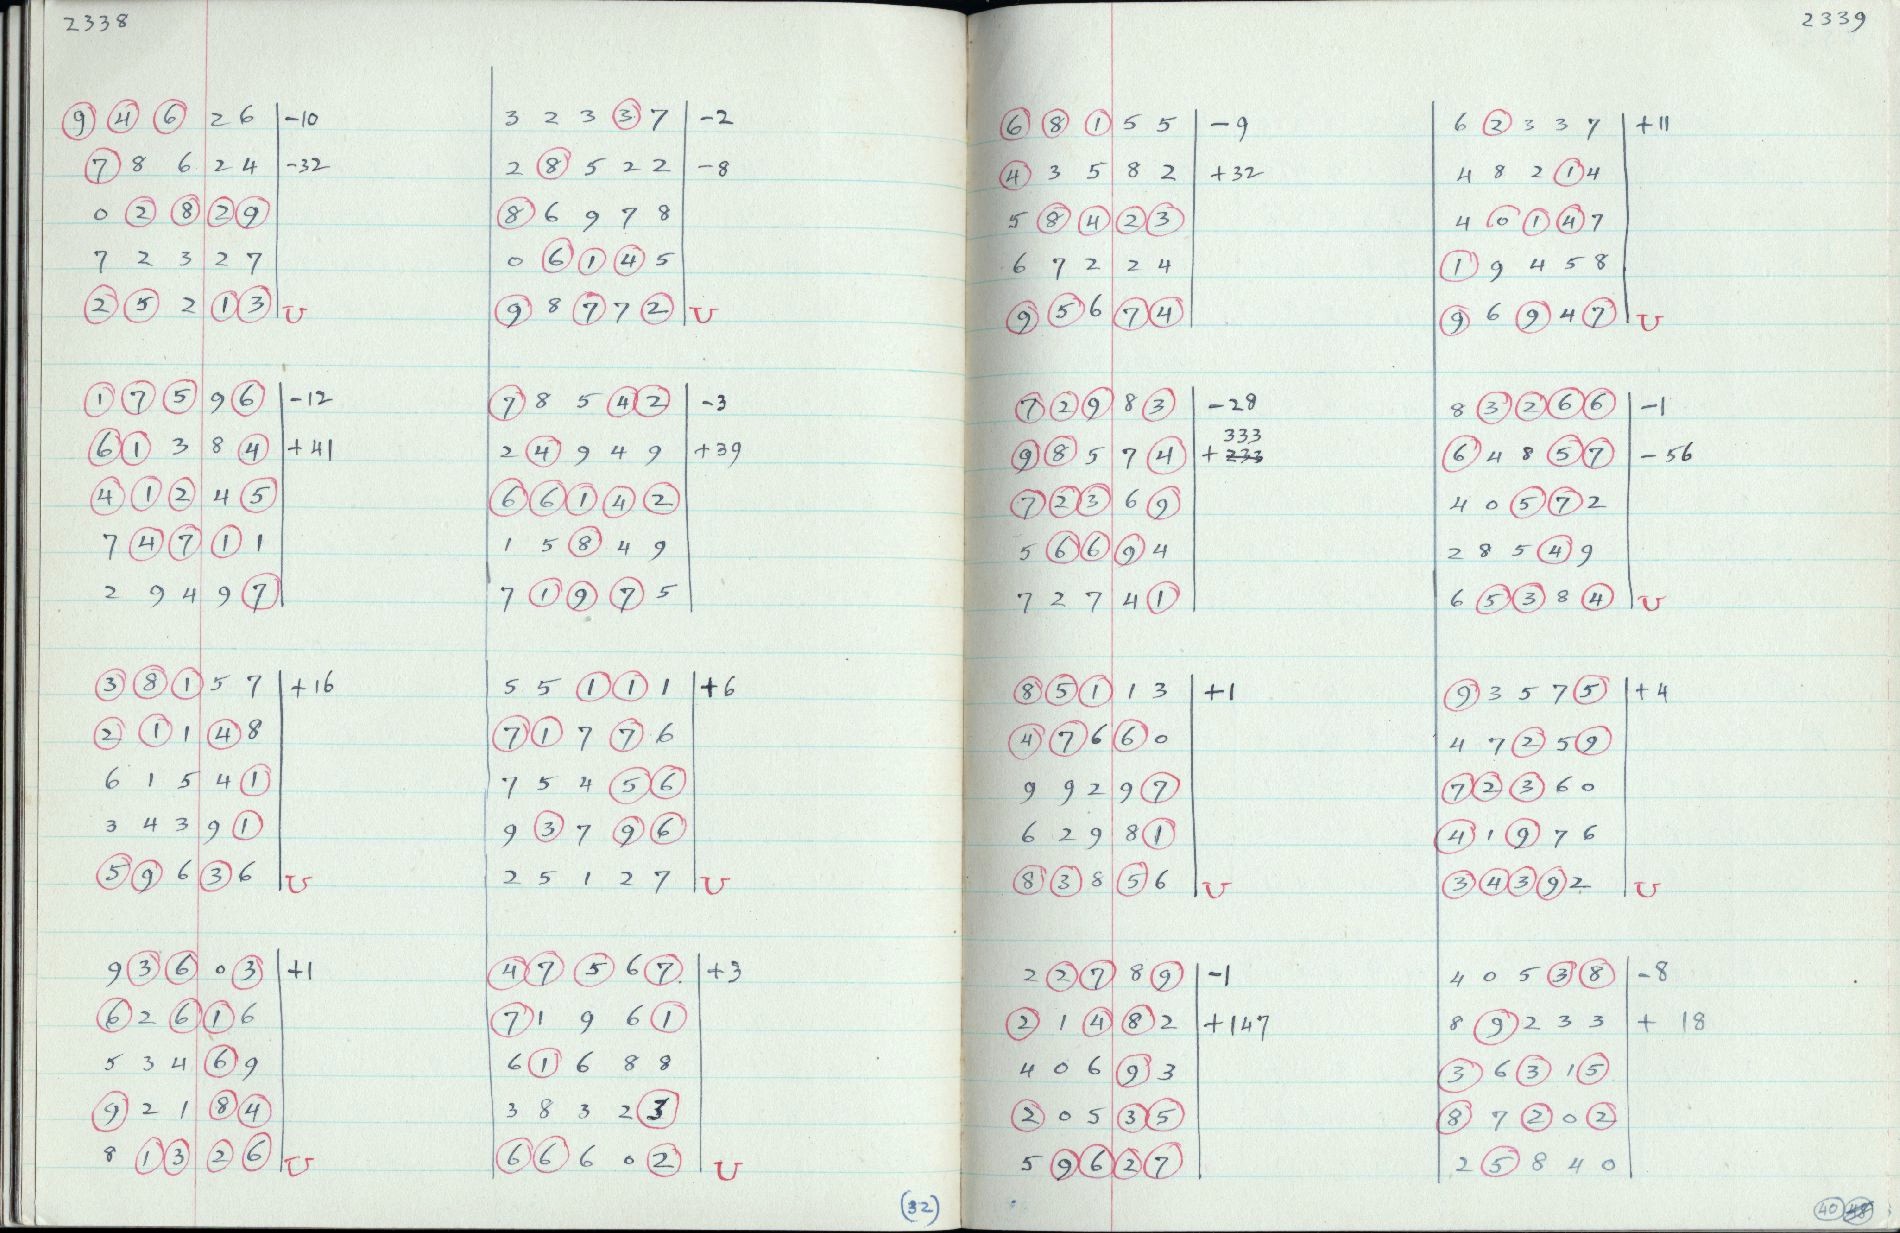 2338
9 4 6 2 6 -10
7 8 6 2 4 -32
0 2 8 2 9
7 2 3 2 7
2 5 2 1 3 U
1 7 5 9 6 -12
6 1 3 8 4 +41
4 1 2 4 5
7 4 7 1 1
2 9 4 9 7
3 8 1 5 7 +16
2 1 1 4 8
6 1 5 4 1
3 4 3 9 1
5 9 6 3 6 U
9 3 6 0 3 +1
6 2 6 1 6
5 3 4 6 9
9 2 1 8 4
8 1 3 2 6 U
3 2 3 3 7 -2
2 8 5 2 2 -8
8 6 9 7 8
0 6 1 4 5
9 8 7 7 2 U
7 8 5 4 2 -3
2 4 9 4 9 +39
6 6 1 4 2
1 5 8 4 9
7 1 9 7 5
5 5 1 1 1 +6
7 1 7 7 6
7 5 4 5 6
9 3 7 9 6
2 5 1 2 7 U
4 7 5 6 7 +3
7 1 9 6 1
6 1 6 8 8
3 8 3 2 3
6 6 6 0 2 U
(32)
2339
6 8 1 5 5 -9
4 3 5 8 2 +32
5 8 4 2 3
6 7 2 2 4
9 5 6 7 4
7 2 9 8 3 -28
333
9 8 5 7 4 +233
7 2 3 6 9
5 6 6 9 4
7 2 7 4 1
8 5 1 1 3 +1
4 7 6 6 0
9 9 2 9 7
6 2 9 8 1
8 3 8 5 6 U
2 2 7 8 9 -1
2 1 4 8 2 +147
4 0 6 9 3
2 0 5 3 5
5 9 6 2 7
6 2 3 3 7 +11
4 8 2 1 4
4 0 1 4 7
1 9 4 5 8
9 6 9 4 7 U
8 3 2 6 6 -1
6 4 8 5 7 -56
4 0 5 7 2
2 8 5 4 9
6 5 3 8 4 U
9 3 5 7 5 +4
4 7 2 5 9
7 2 3 6 0
4 1 9 7 6
3 4 3 9 2 U
4 0 5 3 8 -8
8 9 2 3 3 + 18
3 6 3 1 5
8 7 2 0 2
2 5 8 4 0
40